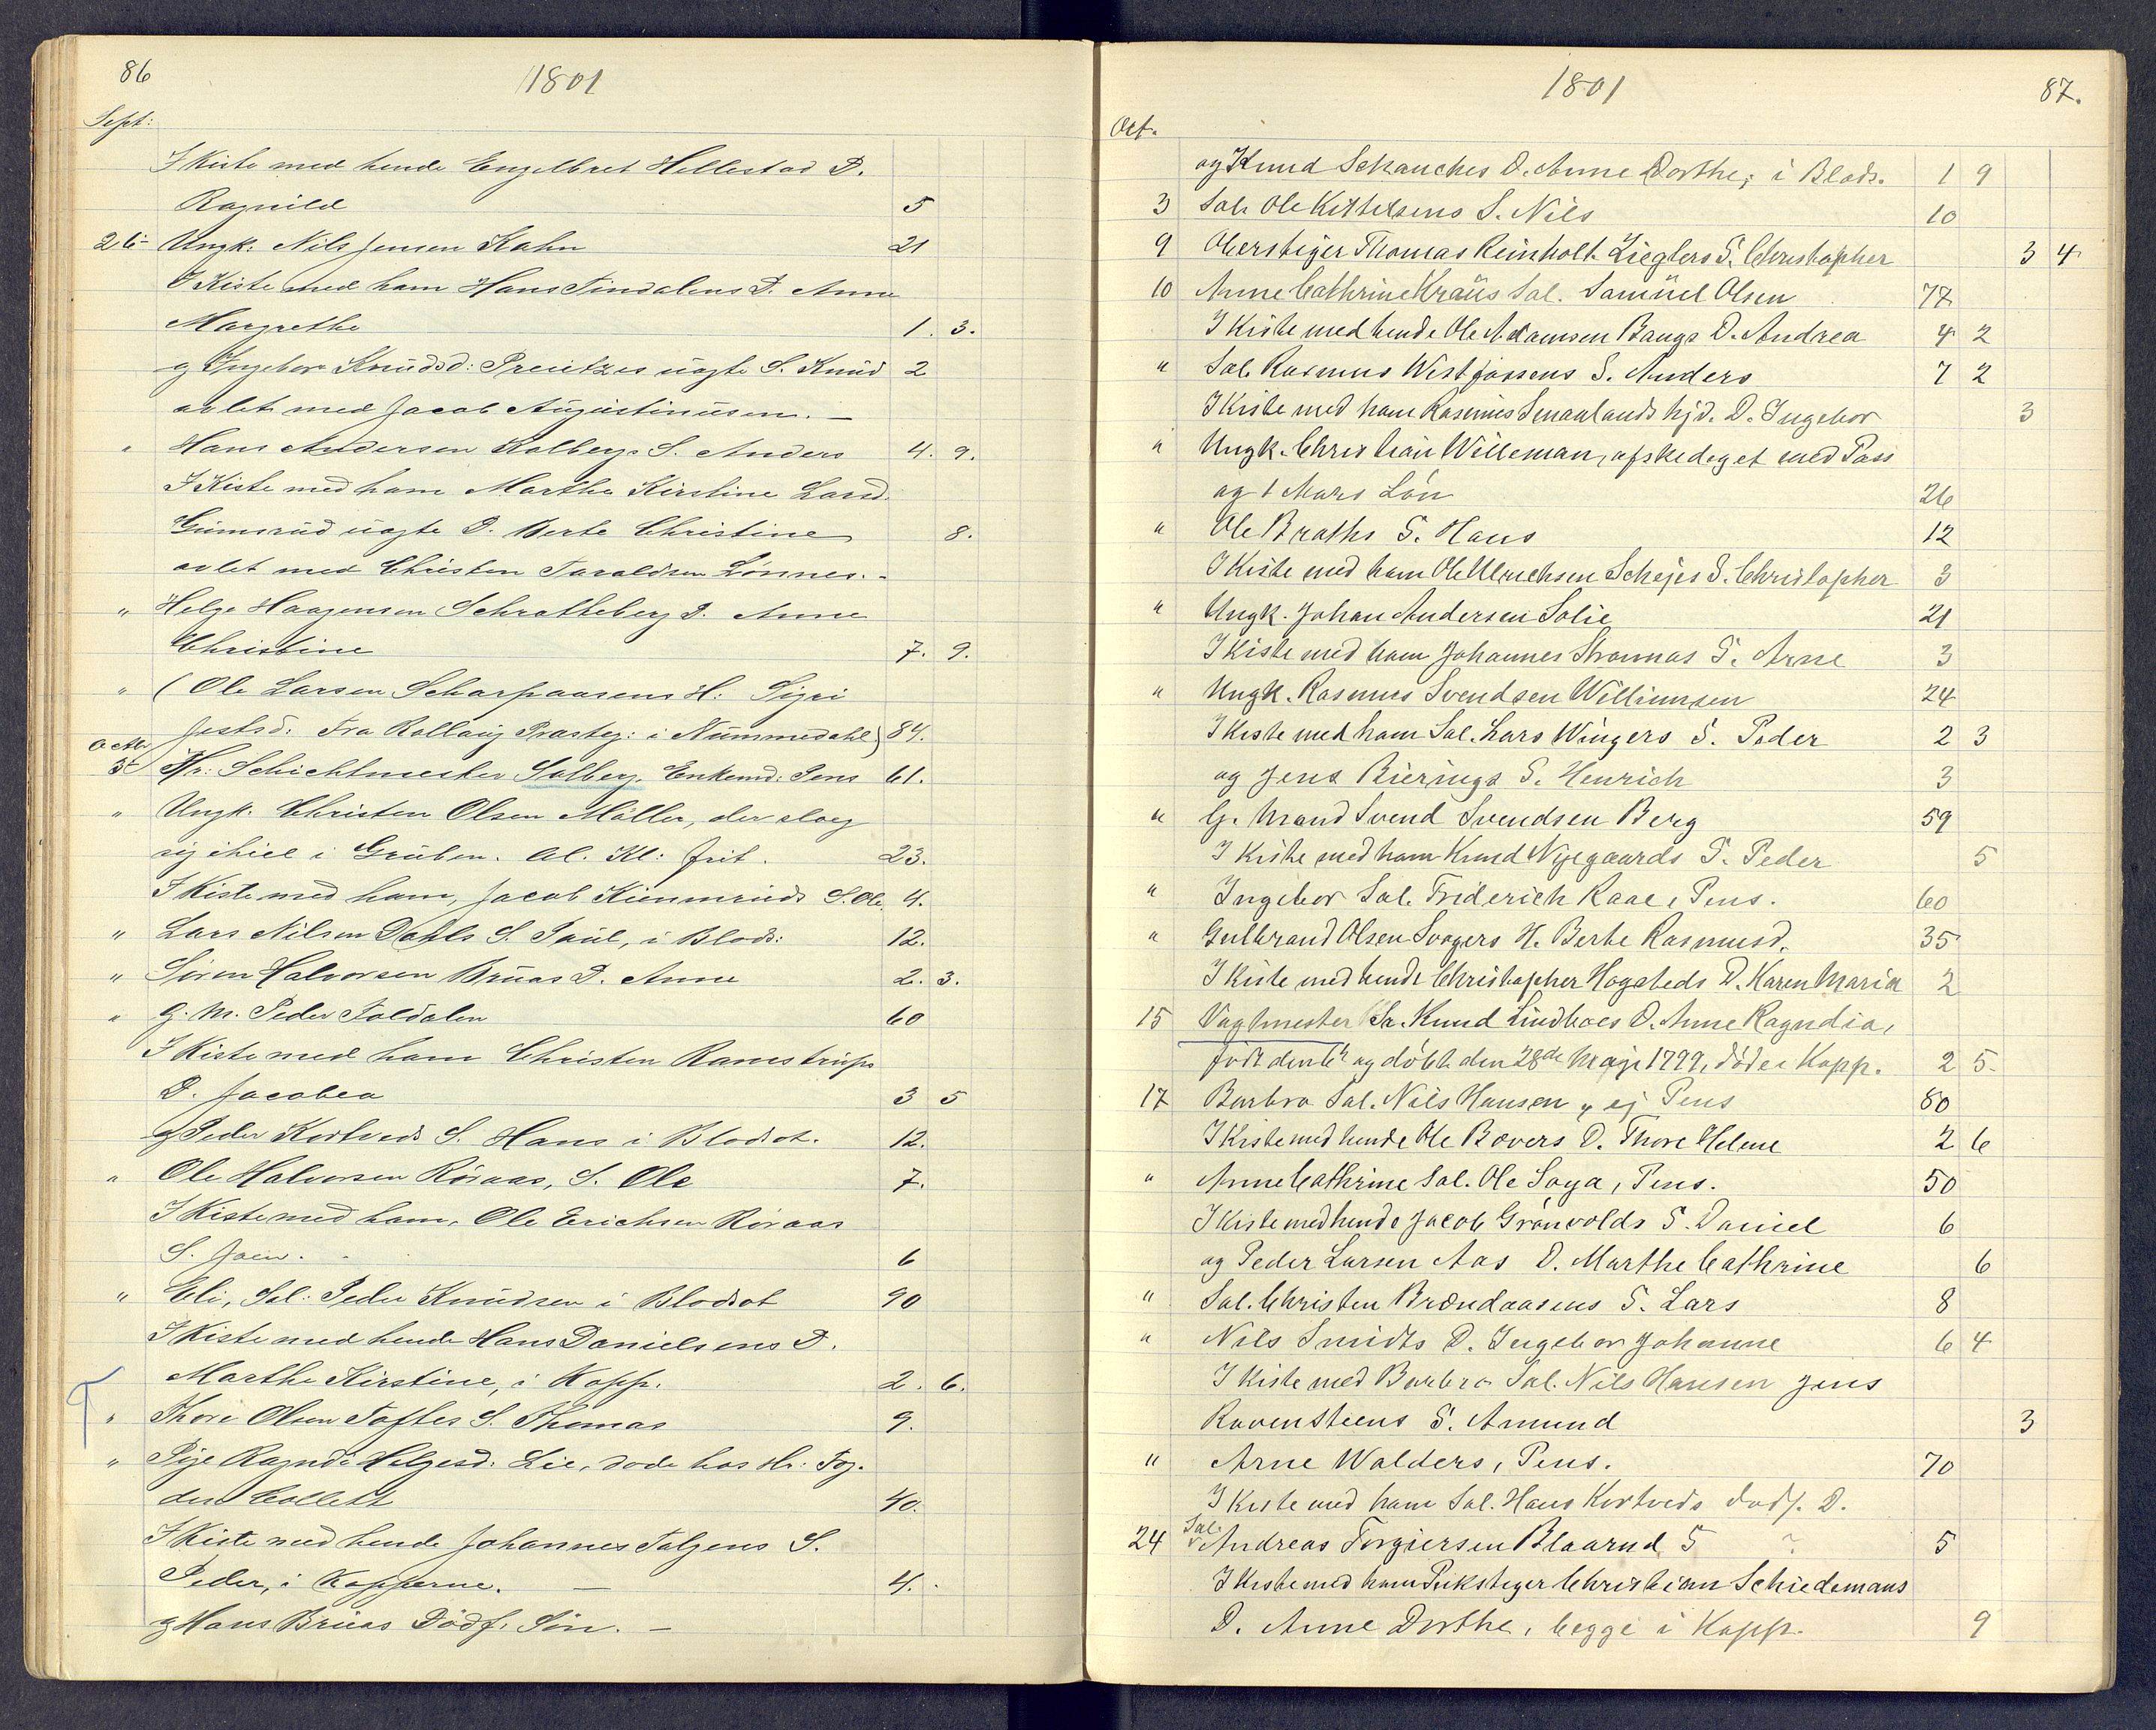 86
1801
Sept:
I Kiste med hende Engelbret Hellestad D.
Ragnild 5
26 Ungk: Nils Jensen Kahn 21
I Kiste med ham Hans Tindalens D. Anne
Margrethe 1. 3.
og Ingebor Knüdsd: Preutzes üagte S. Knüd 2
avlet med Jacob Augustinüsen. —
" Hans Andersen Kolbergs S. Anders 4. 9.
I Kiste med ham Marthe Kirstine Larsd.
Gümsrüd üagte D. Berte Christine 8.
avlet med Christen Taraldsen Lønnes. -
" Helge Haagensen Schratteberg D. Anne
Christine 7. 9.
" (Ole Larsen Scharpaasens H: Sigri
Jostsd: Fra Rollaug Præsteg: i Nümmedahl) 84.
Octbr
3 Hr: Schichtmester Solberg. Enkemd: Pens 61.
" Ungk. Christen Olsen Møller, der slog
sig ihiel i Grüben. Al. Kl: frit. 23.
I Kiste med ham, Jacob Kienmrüds S. Ole. 4.
" Lars Nilsen Dahls S. Paül, i Blods: 12.
" Søren Halvorsen Brüas D. Anne 2. 3.
" G. M. Peder Foldalen 60
I Kiste med ham Christen Ramstrüps
D. Jacobea 3 5
og Peder Kortveds S. Hans i Blodsot. 12.
" Ole Halvorsen Røraas, S. Ole 7.
I Kiste med ham, Ole Erichsen Røraas
S. Joen. 6
" Eli, Sal: Peder Knüdsen i Blodsot 90
I Kiste med hende Hans Danielsens D.
Marthe Kirstine, i Kopp. 2. 6.
" Thore Olsen Toftes S. Thomas 9.
" Pige Ragndi Helgesd: Lie, døde hos Hr: Fog-
den Collett 40.
I Kiste med hende Johannes Tolgens S.
Peder, i Kopperne. — 4.
og Hans Brüas Dødf. Søn. —
1801
87.
Oct.
og Knud Schauches D. Anne Dorthe, i Blods. 1 9
3 Sal. Ole Kittelsens S. Nils 10
9 Oberstiger Thomas Reinholt Zieglers S. Christopher 3 4
10 Anne Cathrine Kraüs Sal. Samüel Olsen 77
I Kiste med hende Ole Adamsen Bangs D. Andrea 4 2
" Sal. Rasmus Westfossens S. Anders 7 2
I Kiste med ham Rasmus Smaalands hjd. D. Ingebor 3
" Ungk. Christian Willeman, afskediget med Pass
og 1 Mars Løn 26
" Ole Braths S. Hans 12
I Kiste med ham Ole Ulrichsen Schejes S. Christopher 3
" Ungk. Johan Andersen Solie 21
I Kiste med ham Johannes Stromnas S. Arne 3
" Ungk. Rasmus Svendsen Williumsen 24
I Kiste med ham Sal. Lars Wingers S. Peder 2 3
og Jens Bierings S. Henrich 3
" G. Mand Svend Svendsen Berg 59
I Kiste med ham Knud Nyegaards S. Peder 5
" Ingebor Sal. Friderich Raae, Pens. 60
" Gulbrand Olsen Svagers H. Berte Rasmusd. 35
I Kiste med hende Christopher Hogsteds D. Karen Maria 2
15 Vagtmester Sr. Knud Lindhoes D. Anne Ragndia,
født den 6te og døbt den 28de Maji 1799, død i Kopp. 2 5.
17 Barbro Sal. Nils Hansen, ej Pens 80
I Kiste med hende Ole Bovers D. Thore Helene 2 6
" Anne Cathrine Sal. Ole Soya, Pens. 50
I Kiste med hende Jacob Grønvolds S. Daniel 6
og Peder Larsen Aas D. Marthe Cathrine 6
" Sal. Christen Brændaasens S. Lars 8
" Nils Smidts D. Ingebor Johanne 6 4
I Kiste med Barbro Sal. Nils Hansen Jens
Ravensteens S. Amund 3
" Arne Walders, Pens. 70
I Kiste med ham Sal. Hans Kortveds dødf. D.
24 Sal. Andreas Torgiersen Blaarud S ? 5
I Kiste med ham Pukstiger Christian Schiedemans
D. Anne Dorthe, begge i Kopp. 9